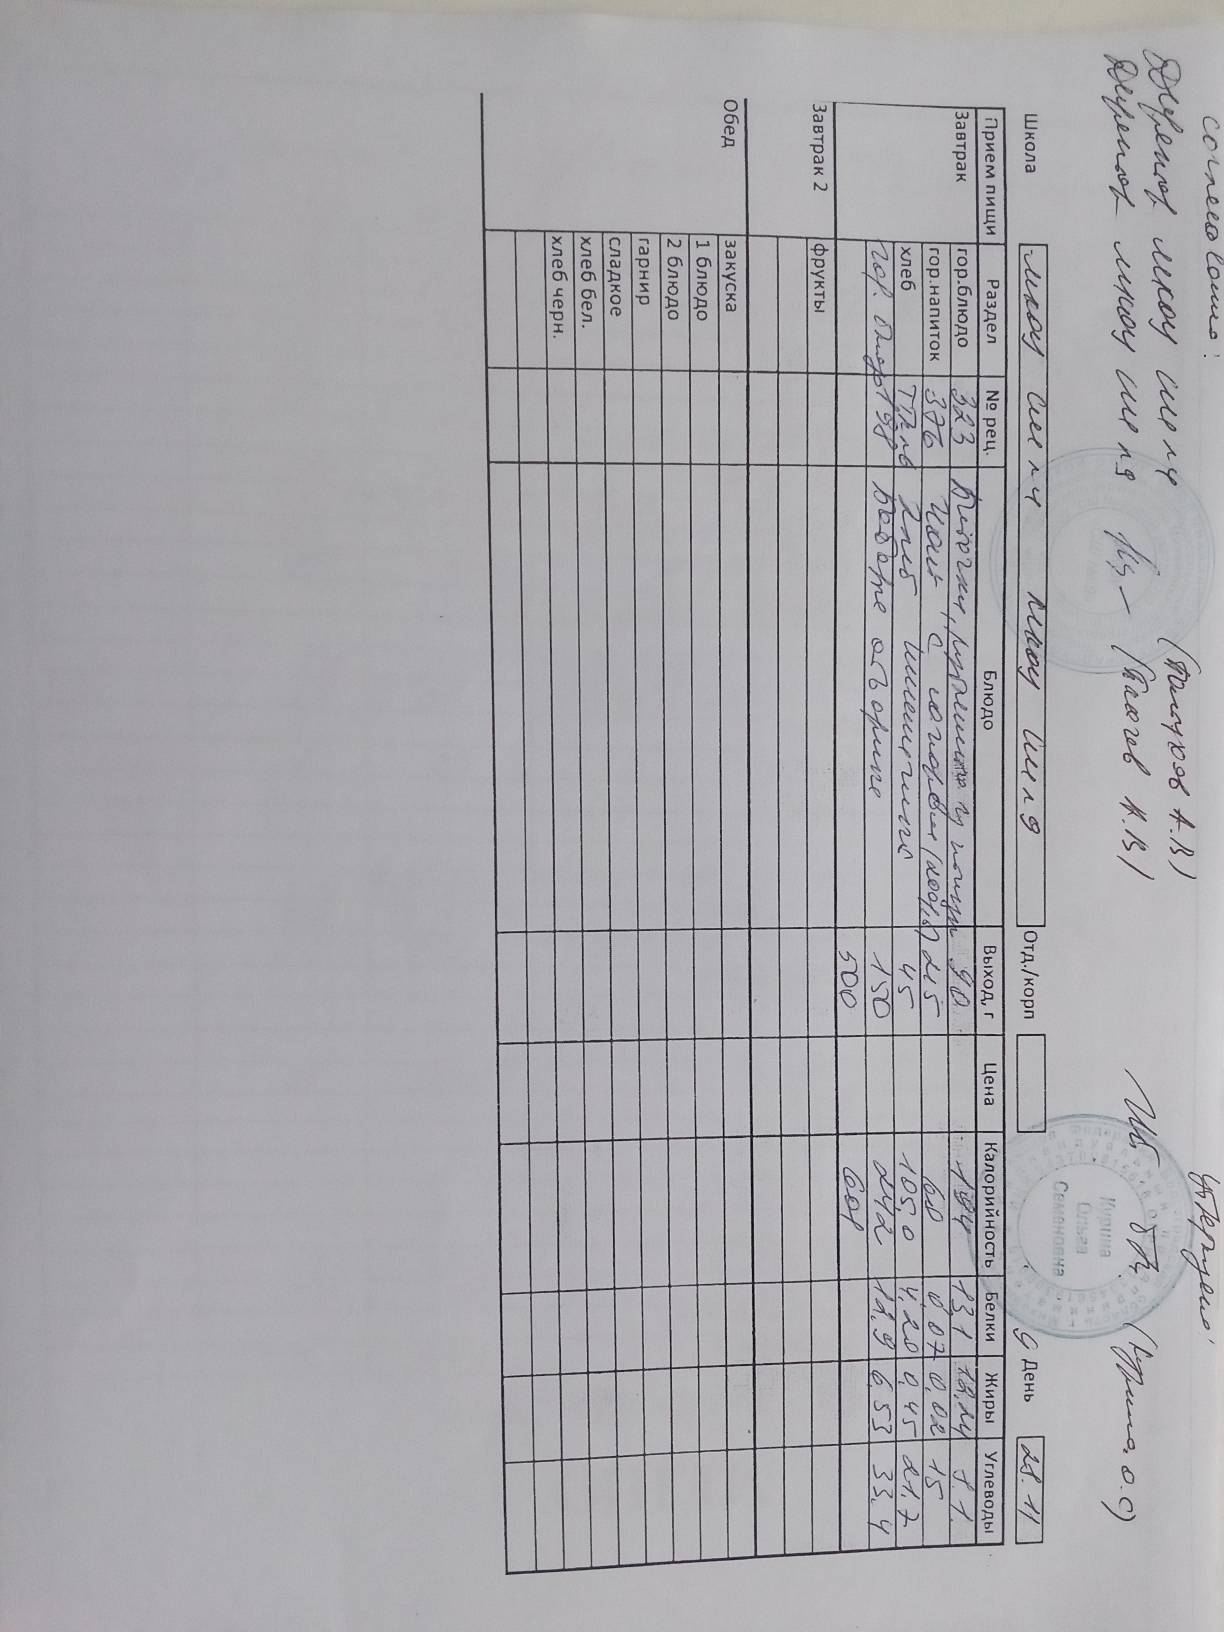 согласовано:
Директор МКОУ СШ №4 (А.В)
Директор МКОУ СШ №9 А.В)
Утверждено:
(Курина О.С)
Курина
Ольга
Семеновна
Школа МКОУ СШ №4 МКОУ СШ №9 Отд./корп 9 день 28.11
Прием пищи Раздел № рец. Блюдо Выход, г Цена Калорийность Белки Жиры Углеводы
Завтрак гор.блюдо 323 Биточки, рубленные из птицы 90 194 13,1 8.1.
гор.напиток 376 с сахаром 215 60 0,07 0,02 15
хлеб Хлеб пшеничный 45 105,0 4,20 0,45 21,7
гор. блюдо 198 Бобовые отварные 150 242 6,53 33,4
500 601
Завтрак 2 фрукты
Обед закуска
1 блюдо
2 блюдо
гарнир
сладкое
хлеб бел.
хлеб черн.